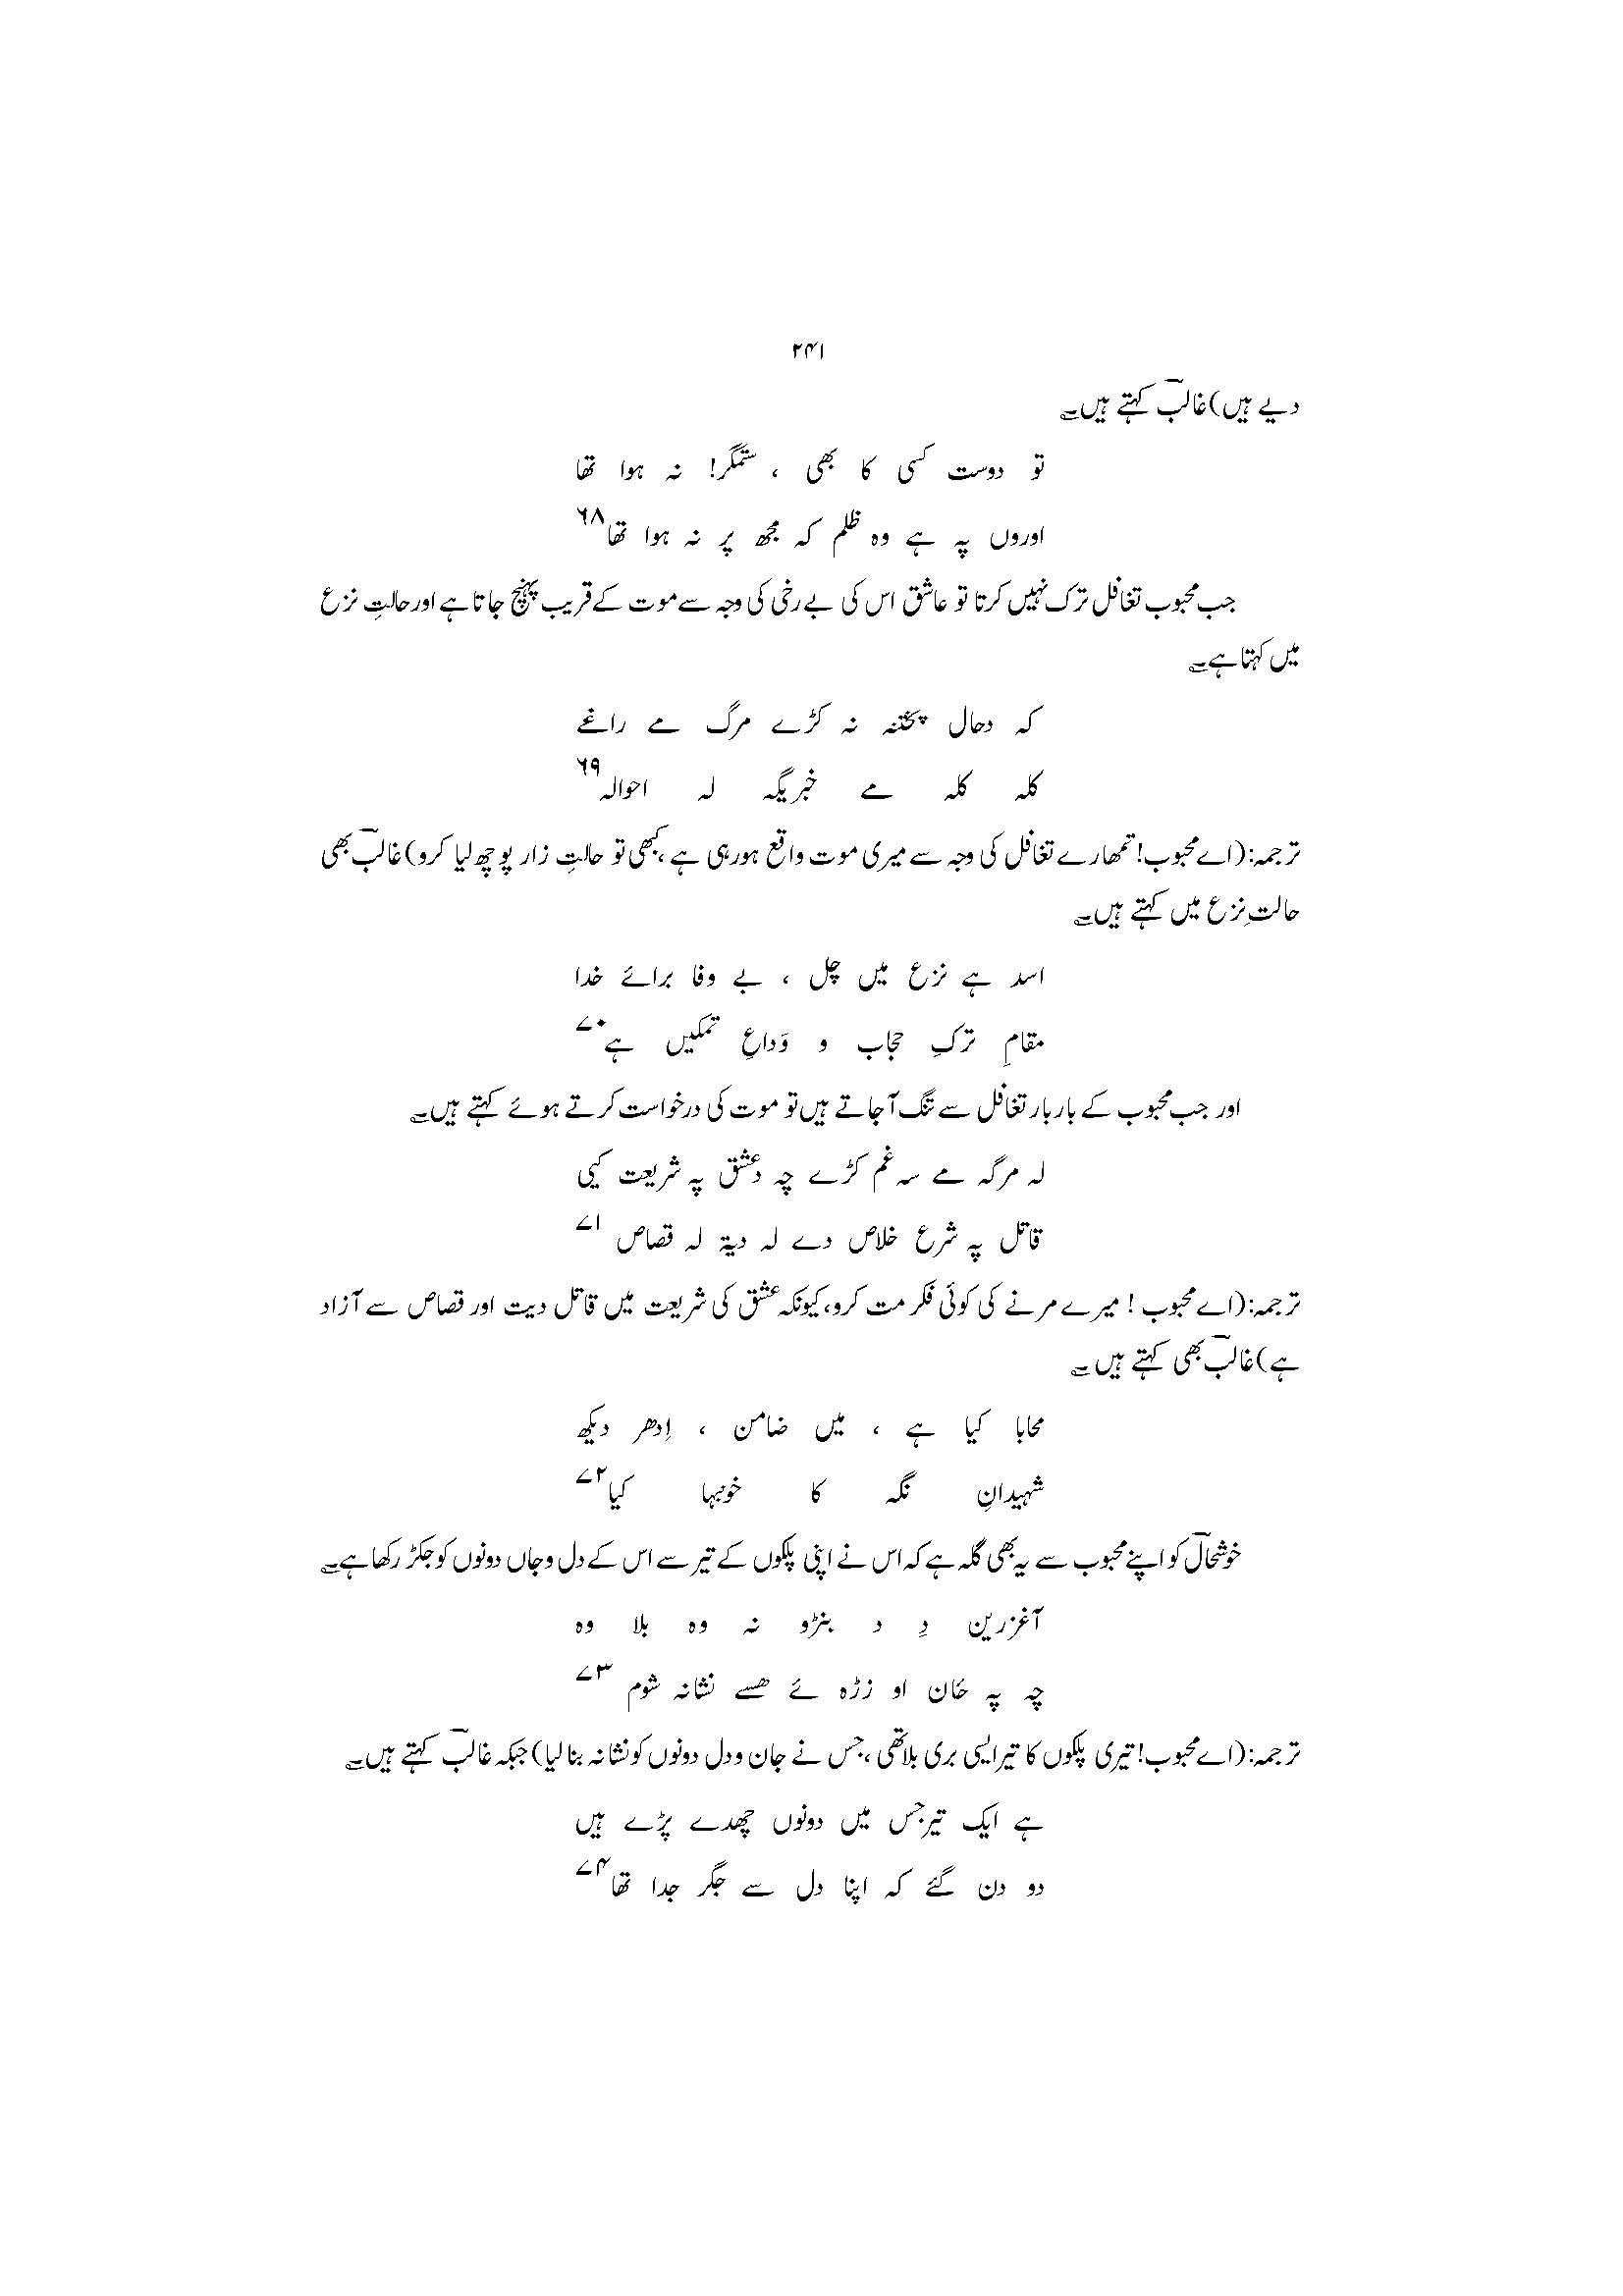 ۲۴۱
دیے ہیں) غالبؔ کہتے ہیں۔؎
تو دوست کسی کا بھی ، ستمگر! نہ ہوا تھا
اوروں پہ ہے وہ ظلم کہ مجھ پر نہ ہوا تھا۶۸
جب محبوب تغافل ترک نہیں کرتا تو عاشق اس کی بے رخی کی وجہ سے موت کے قریب پہنچ جاتا ہے اور حالتِ نزع
میں کہتا ہے۔؎
کہ دحال پختنہ نہ کڑے مرگ مے راغے
کلہ کلہ مے خبریگہ لہ احوالہ۶۹
ترجمہ: (اے محبوب! تمھارے تغافل کی وجہ سے میری موت واقع ہورہی ہے، کبھی تو حالتِ زار پوچھ لیا کرو) غالبؔ بھی
حالتِ نزع میں کہتے ہیں۔؎
اسد ہے نزع میں چل ، بے وفا برائے خدا
مقامِ ترکِ حجاب و وَداعِ تمکیں ہے۷۰
اور جب محبوب کے بار بار تغافل سے تنگ آجاتے ہیں تو موت کی درخواست کرتے ہوئے کہتے ہیں۔؎
لہ مرگہ مے سہ غم کڑے چہ دعشق پہ شریعت کیی
قاتل پہ شرع خلاص دے لہ دیۃ لہ قصاص ۷۱
ترجمہ: (اے محبوب ! میرے مرنے کی کوئی فکر مت کرو، کیونکہ عشق کی شریعت میں قاتل دیت اور قصاص سے آزاد
ہے) غالبؔ بھی کہتے ہیں۔؎
محابا کیا ہے ، میں ضامن ، اِدھر دیکھ
شہیدانِ نگہ کا خونبہا کیا۷۲
خوشحالؔ کو اپنے محبوب سے یہ بھی گلہ ہے کہ اس نے اپنی پلکوں کے تیر سے اس کے دل و جاں دونوں کو جکڑ رکھا ہے۔؎
آغزرین دِ د بنڑو نہ وہ بلا وہ
چہ پہ ځان او زڑہ ئے ھسے نشانہ شوم ۷۳
ترجمہ: (اے محبوب! تیری پلکوں کا تیر ایسی بری بلا تھی، جس نے جان و دل دونوں کو نشانہ بنالیا) جبکہ غالبؔ کہتے ہیں۔؎
ہے ایک تیر جس میں دونوں چھدے پڑے ہیں
دو دن گئے کہ اپنا دل سے جگر جدا تھا۷۴